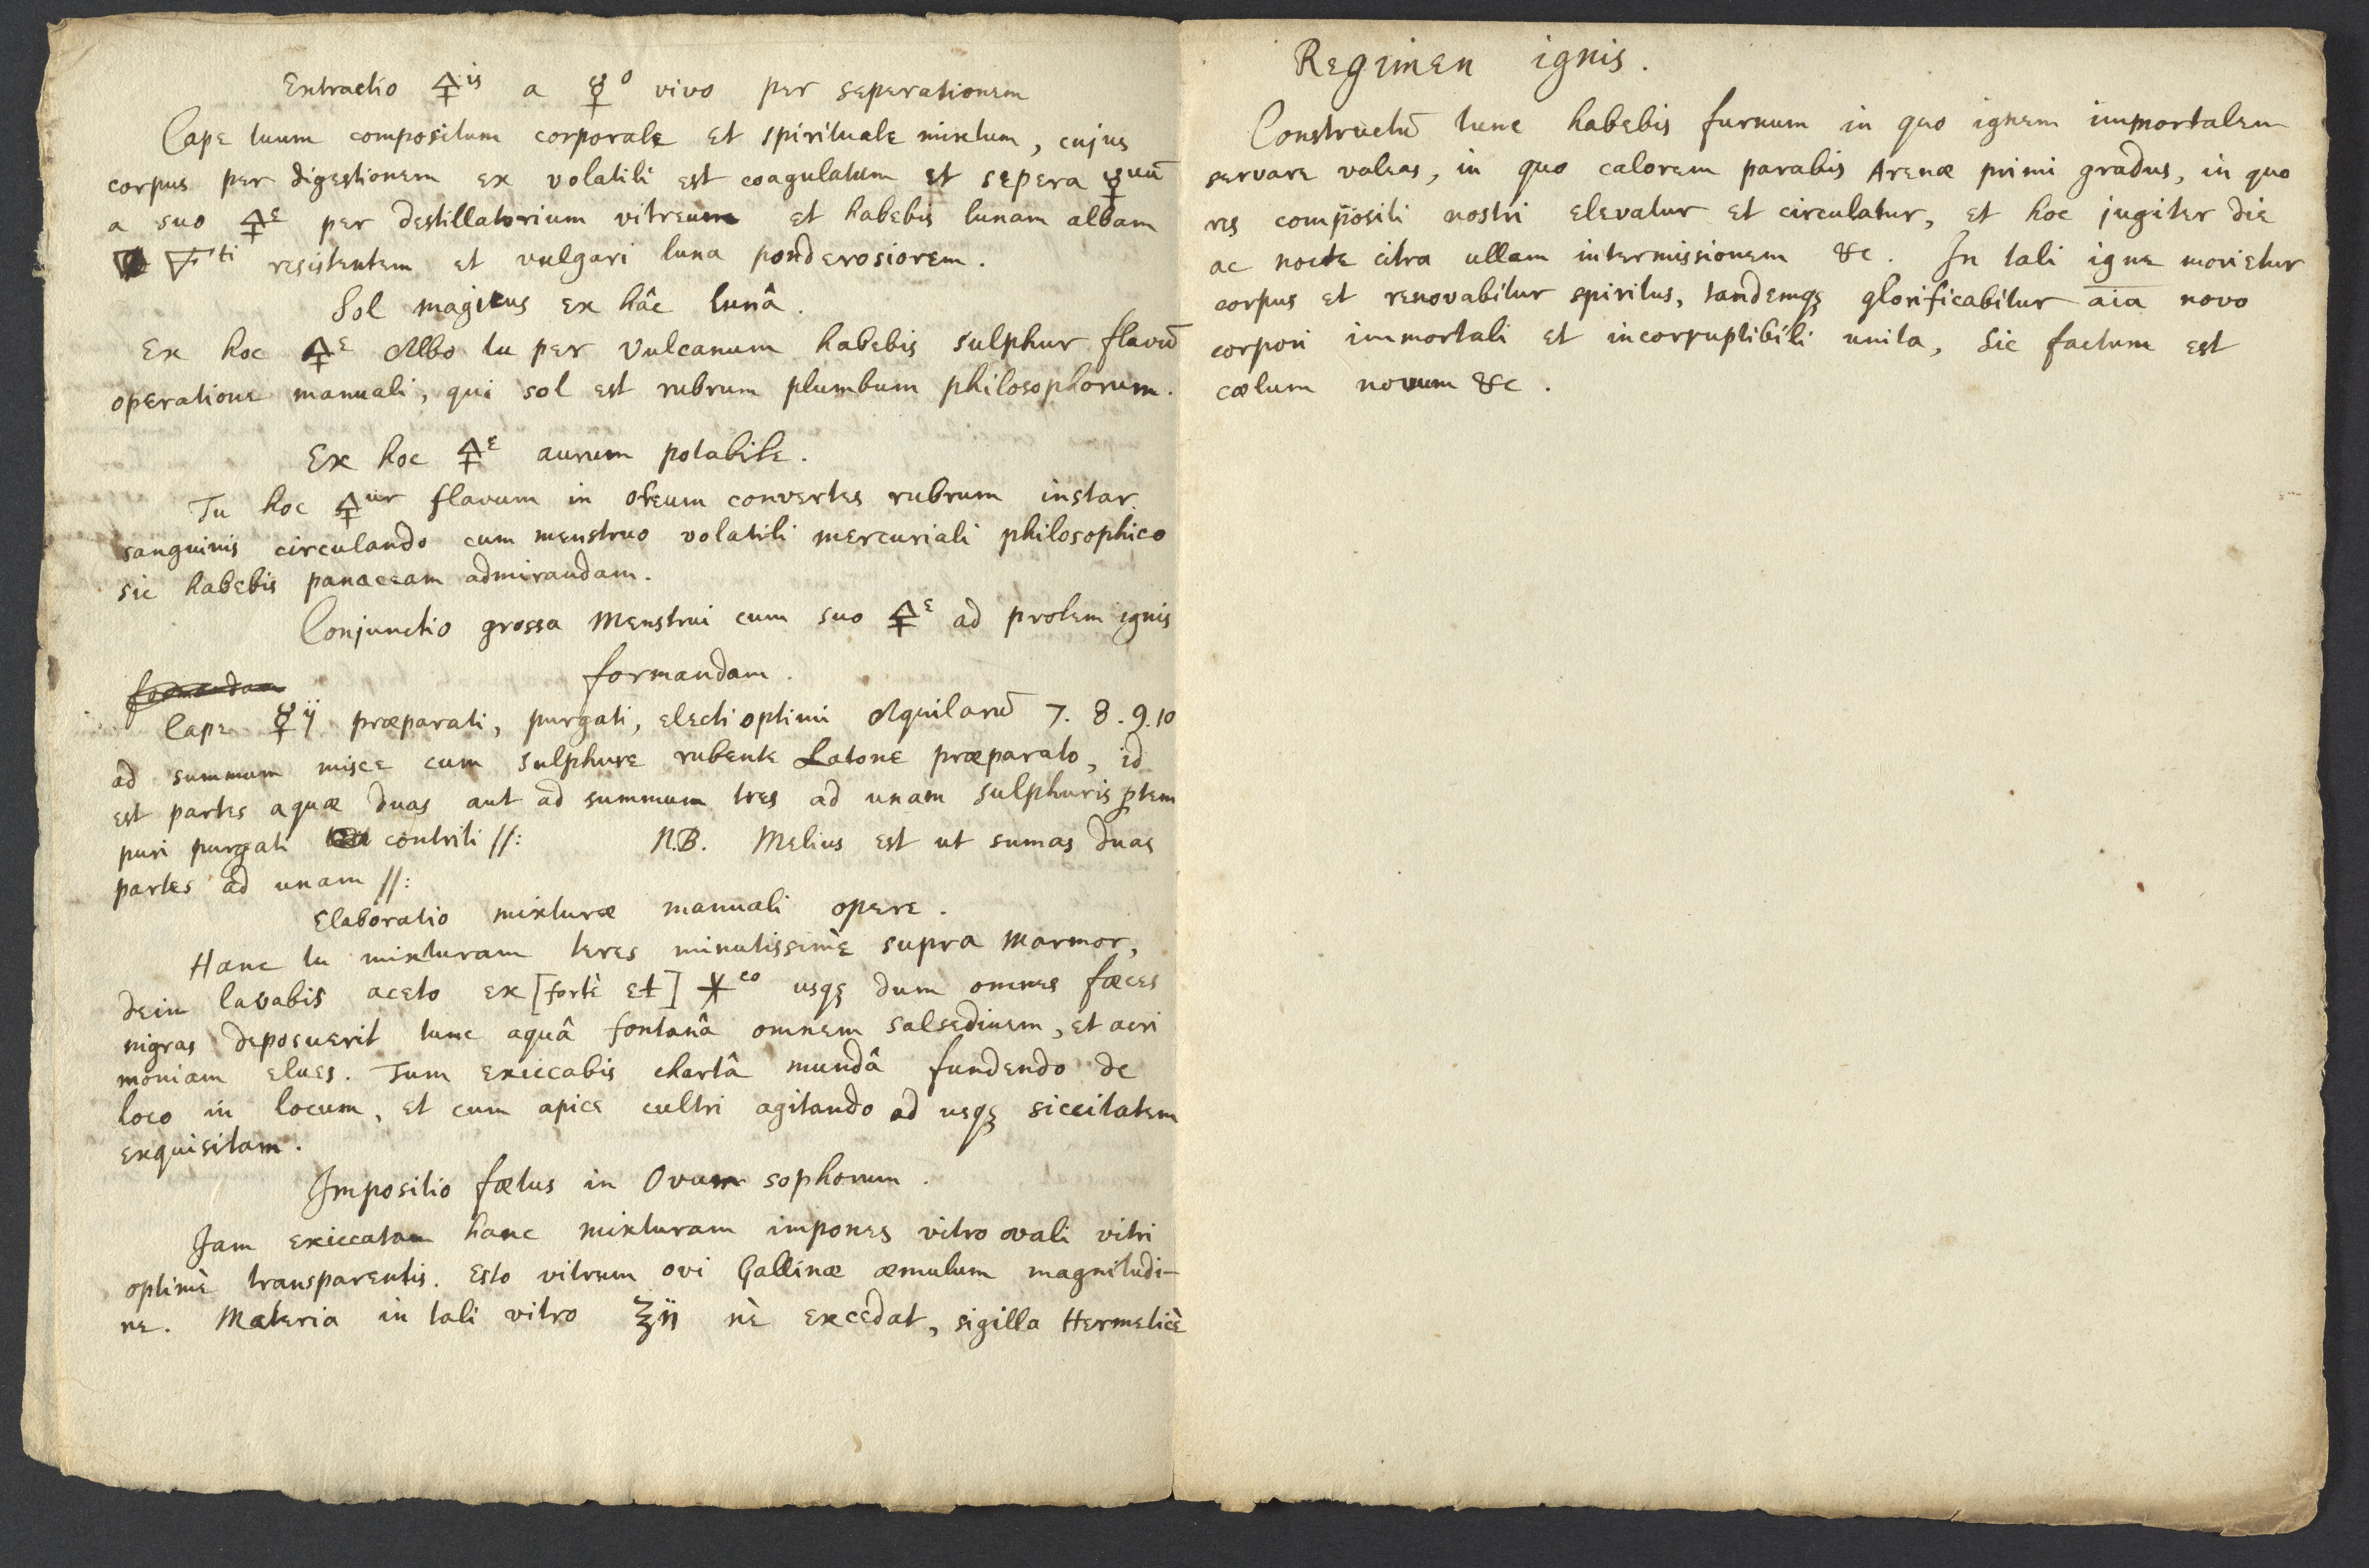 Extractio 🜍is a ☿o vivo per seperationem
Cape tuum compositum corporale et spirituale mixtum, cujus
corpus per digestionem ex volatili est coagulatum et sepera ☿uũ
a suo 🜍e per destillatorium vitreum et habebis lunam albam
🜅ti resistentem et vulgari luna ponderosiorem.
Sol magicus ex hâc lunâ.
Ex hoc 🜍e Albo tu per Vulcanum habebis sulphur flavũ
operatione manuali, qui sol est rubrum plumbum philosophorum.
Ex hoc 🜍e aurum potabile.
Tu hoc 🜍ur flavum in oleum convertes rubrum instar
sanguinis circulando cum menstruo volatili mercuriali philosophico
sic habebis panaceam admirandam.
Conjunctio grossa Menstrui cum suo 🜍e ad prolem ignis
formandam.
formandam
Cape ☿ij præparati, purgati, electi optimi Aquilarũ 7. 8. 9. 10
ad summum misce cum sulphure rubente Latone præparato, id
est partes aquæ duas aut ad summum tres ad unam sulphuris ꝑtem
puri purgati contriti //: N.B. Melius est ut sumas duas
partes ad unam //:
Elaboratio mixturæ manuali opere.
Hanc tu mixturam teres minutissimè supra Marmor,
dein lavabis aceto ex [fortè et] ✶co usqꝫ dum omnes fæces
nigras deposuerit tunc aquâ fontanâ omnem salsedinem, et acri
moniam elues. Tum exiccabis chartâ mundâ fundendo de
loco in locum, et cum apice cultri agitando ad usqꝫ siccitatem
exquisitam.
Impositio fætus in Ovum sophorum.
Jam exiccatam hanc mixturam impones vitro ovali vitri
optimè transparentis. Esto vitrum ovi Gallinæ æmulum magnitudi-
ne. Materia in tali vitro ℥ij nè excedat, sigilla Hermeticè
Regimen ignis.
Constructũ tunc habebis furnum in quo ignem immortalem
servare valeas, in quo calorem parabis Arenæ primi gradus, in quo
res compositi nostri elevatur et circulatur, et hoc jugiter die
ac nocte citra ullam intermissionem &c. In tali igne morietur
corpus et renovabitur spiritus, tandemqꝫ glorificabitur a̅i̅a̅ novo
corpori immortali et incorruptibili unita, Sic factum est
cœlum novum &c.